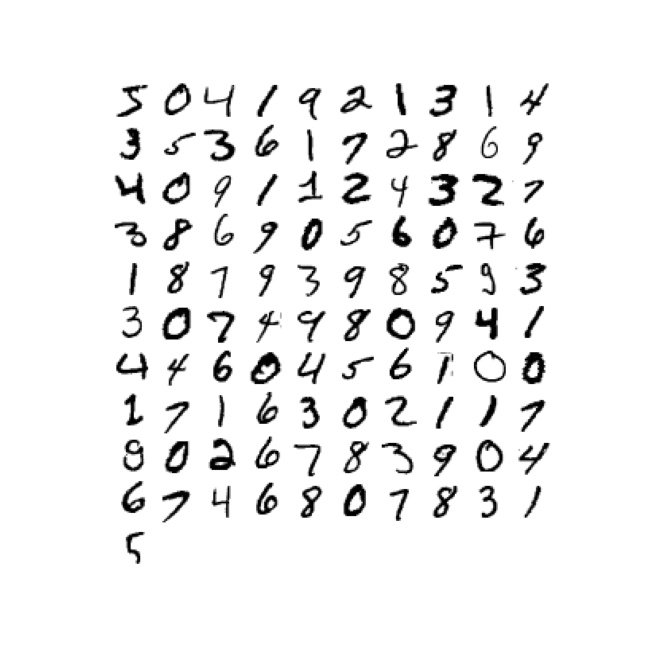 5 0 4 1 9 2 1 3 1 4
3 5 3 6 1 7 2 8 6 9
4 0 9 1 1 2 4 3 2 7
3 8 6 9 0 5 6 0 7 6
1 8 7 9 3 9 8 5 9 3
3 0 7 4 9 8 0 9 4 1
4 4 6 0 4 5 6 1 0 0
1 7 1 6 3 0 2 1 1 7
9 0 2 6 7 8 3 9 0 4
6 7 4 6 8 0 7 8 3 1
5